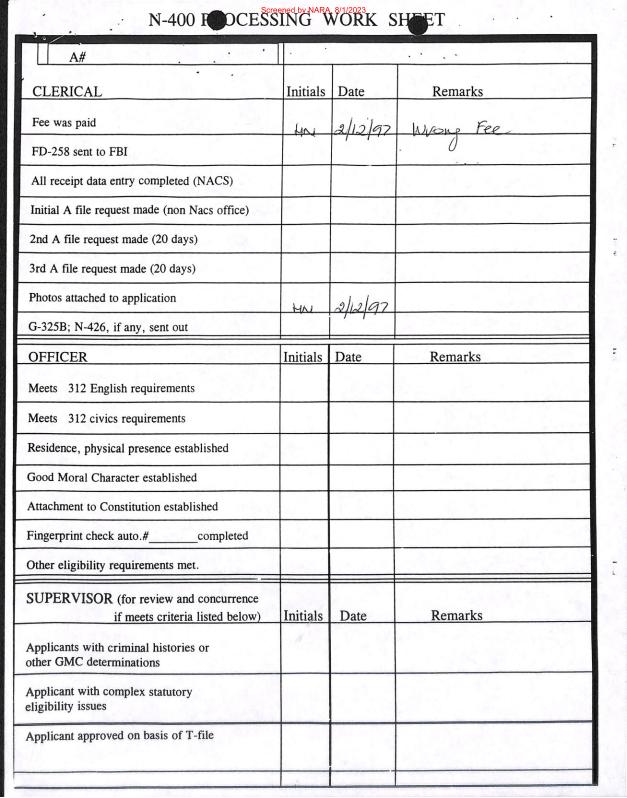 Screened by NARA, 8/1/2023
N-400 PROCESSING WORK SHEET
A#
CLERICAL Initials Date Remarks
Fee was paid HN 2/12/97 Wrong Fee
FD-258 sent to FBI
All receipt data entry completed (NACS)
Initial A file request made (non Nacs office)
2nd A file request made (20 days)
3rd A file request made (20 days)
Photos attached to application HN 2/12/97
G-325B; N-426, if any, sent out
OFFICER Initials Date Remarks
Meets 312 English requirements
Meets 312 civics requirements
Residence, physical presence established
Good Moral Character established
Attachment to Constitution established
Fingerprint check auto.#________completed
Other eligibility requirements met.
SUPERVISOR (for review and concurrence
if meets criteria listed below) Initials Date Remarks
Applicants with criminal histories or
other GMC determinations
Applicant with complex statutory
eligibility issues
Applicant approved on basis of T-file